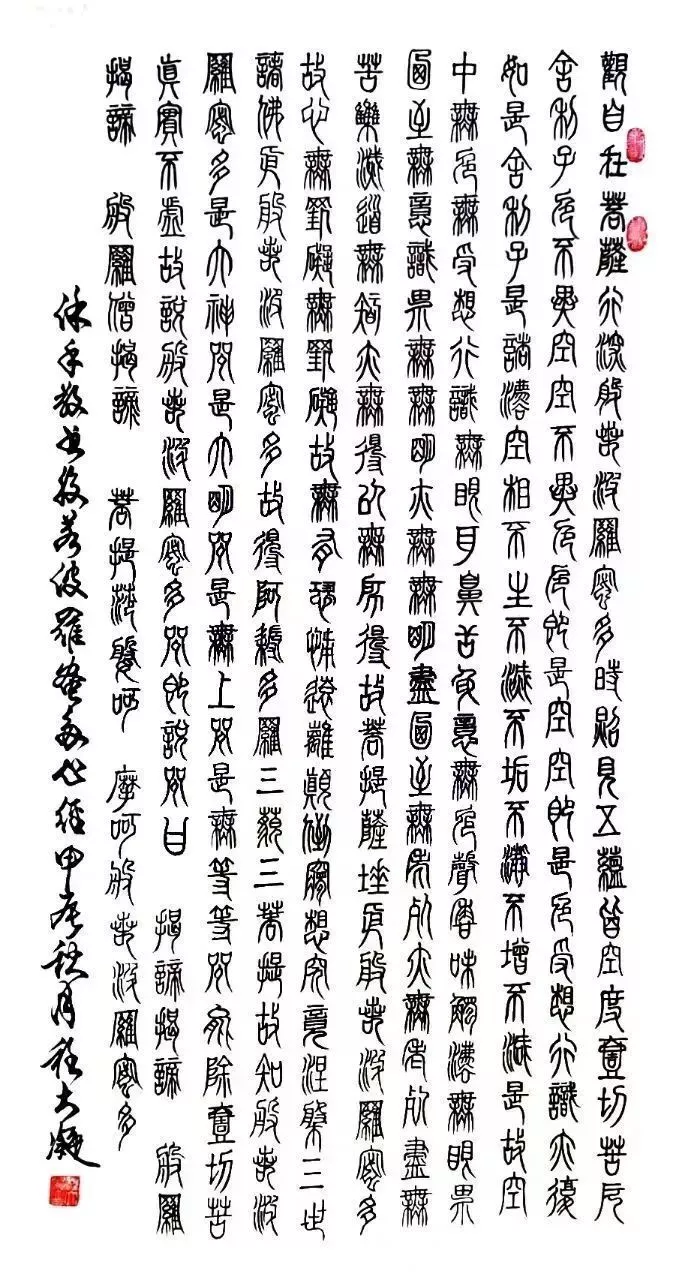 觀自在菩薩行深般若波羅蜜多時照見五蘊皆空度壹切苦厄
舍利子色不異空空不異色色即是空空即是色受想行識亦復
如是舍利子是諸灋空相不生不滅不垢不淨不增不減是故空
中無色無受想行識無眼耳鼻舌身意無色聲香味觸灋無眼界
乃至無意識界無無明亦無無明盡乃至無老死亦無老死盡無
苦集滅道無智亦無得以無所得故菩提薩埵依般若波羅蜜多
故心無罣礙無罣礙故無有恐怖遠離顛倒夢想究竟涅槃三世
諸佛依般若波羅蜜多故得阿耨多羅三藐三菩提故知般若波
羅蜜多是大神咒是大明咒是無上咒是無等等咒能除壹切苦
真實不虛故說般若波羅蜜多咒即說咒曰 揭諦揭諦 般羅
揭諦 般羅僧揭諦 菩提莎婆呵 摩呵般若波羅蜜多
敬書般若波羅蜜多心經甲秋月